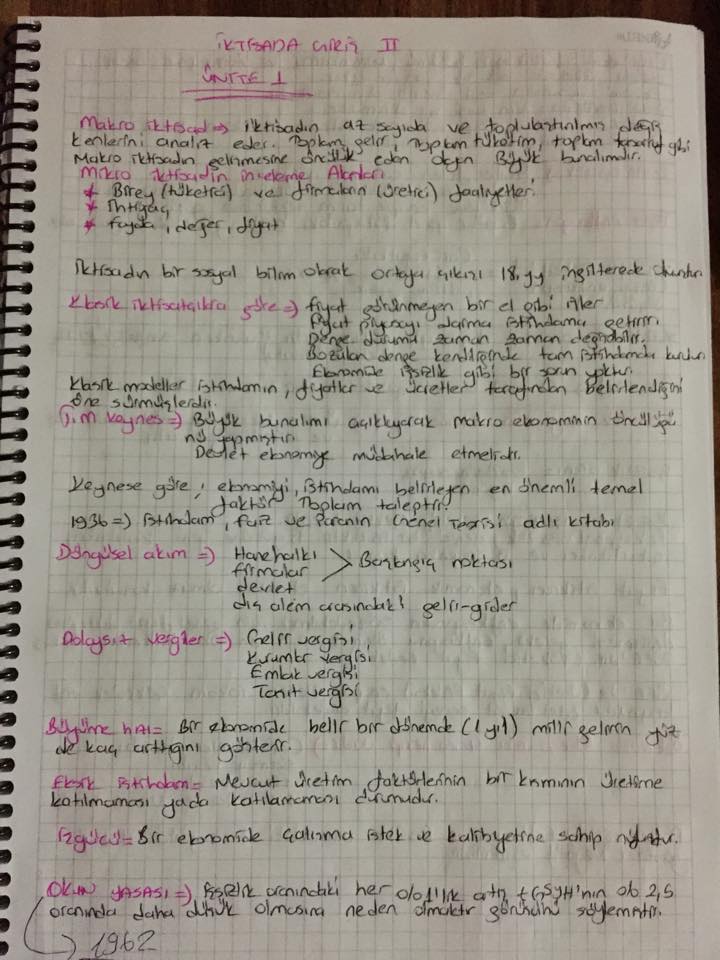 İKTİSADA GİRİŞ II
ÜNİTE 1
Makro iktisad => iktisadın az sayıda ve toplulaştırılmış değiş
kenlerini analiz eder. Toplam gelir, Toplam tüketim, toplam tasarruf gibi
Makro iktisadın gelişmesine öncülük eden olgu Büyük bunalımdır.
Mikro iktisadın inceleme Alanları
* Birey (tüketici) ve firmaların (üretici) faaliyetleri
* İhtiyaç
* fayda, değer, fiyat
İktisadın bir sosyal bilim olarak ortaya çıkışı 18.yy ingilterede
Klasik iktisatçılara göre => fiyat görünmeyen bir el gibi işler
Fiyat piyasayı daima istihdama getirir.
Denge durumu zaman zaman değişebilir.
Bozulan denge kendiliğinde tam istihdamda kurulur
Ekonomide işsizlik gibi bir sorun yoktur.
Klasik modeller istihdamın, fiyatlar ve ücretler tarafından belirlendiğini
öne sürmüşlerdir.
J.M Keynes => Büyük bunalımı açıklayarak makro ekonominin öncülüğü
nü yapmıştır
Devlet ekonomiye müdahale etmelidir.
Keynese göre; ekonomiyi, istihdamı belirleyen en önemli temel
faktör Toplam taleptir.
1936 => istihdam, faiz ve Paranın Genel Teorisi adlı kitabı
Döngüsel akım => Hanehalkı
firmalar > Başlangıç noktası
devlet
dış alem arasındaki gelir-gider
Dolaysız vergiler => Gelir vergisi
Kurumlar vergisi
Emlak vergisi
Taşıt vergisi
Büyüme hızı = Bir ekonomide belir bir dönemde (1 yıl) milli gelirin yüz
de kaç arttığını gösterir.
Eksik istihdam = Mevcut üretim faktörlerinin bir kısmının üretime
katılmaması yada katılamaması durumudur.
İşgücü = Bir ekonomide çalışma istek ve kabiliyetine sahip nüfustur.
OKUN YASASI => İşsizlik oranındaki her %1'lik artış GSYH'nın % 2,5
oranında daha düşük olmasına neden olmaktır görüşünü söylemiştir.
→ 1962